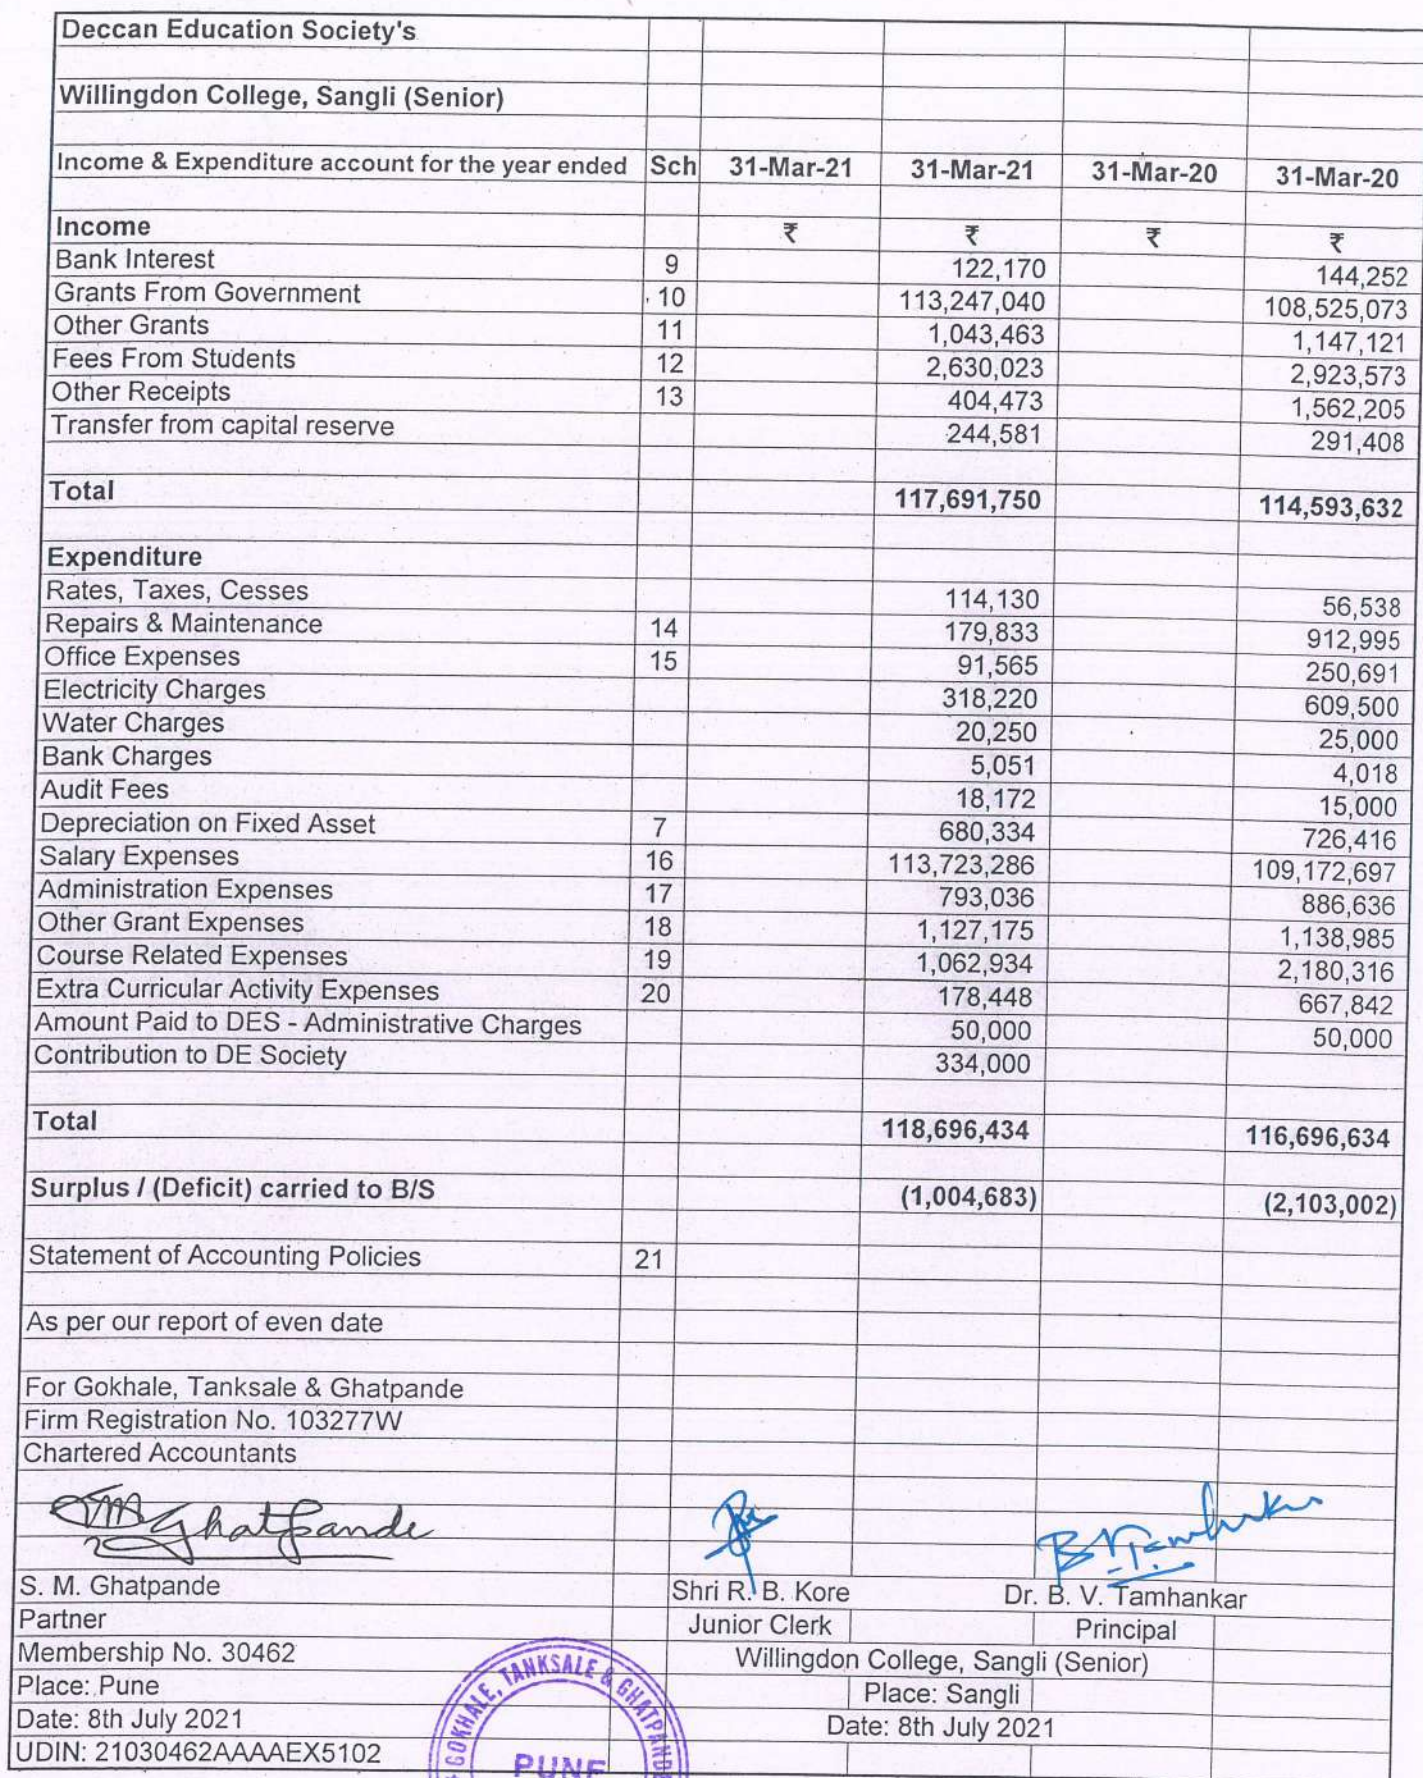 Deccan Education Society's
Willingdon College, Sangli (Senior)
Income & Expenditure account for the year ended Sch 31-Mar-21 31-Mar-21 31-Mar-20 31-Mar-20
Income ₹ ₹ ₹ ₹
Bank Interest 9 122,170 144,252
Grants From Government 10 113,247,040 108,525,073
Other Grants 11 1,043,463 1,147,121
Fees From Students 12 2,630,023 2,923,573
Other Receipts 13 404,473 1,562,205
Transfer from capital reserve 244,581 291,408
Total 117,691,750 114,593,632
Expenditure
Rates, Taxes, Cesses 114,130 56,538
Repairs & Maintenance 14 179,833 912,995
Office Expenses 15 91,565 250,691
Electricity Charges 318,220 609,500
Water Charges 20,250 25,000
Bank Charges 5,051 4,018
Audit Fees 18,172 15,000
Depreciation on Fixed Asset 7 680,334 726,416
Salary Expenses 16 113,723,286 109,172,697
Administration Expenses 17 793,036 886,636
Other Grant Expenses 18 1,127,175 1,138,985
Course Related Expenses 19 1,062,934 2,180,316
Extra Curricular Activity Expenses 20 178,448 667,842
Amount Paid to DES - Administrative Charges 50,000 50,000
Contribution to DE Society 334,000
Total 118,696,434 116,696,634
Surplus / (Deficit) carried to B/S (1,004,683) (2,103,002)
Statement of Accounting Policies 21
As per our report of even date
For Gokhale, Tanksale & Ghatpande
Firm Registration No. 103277W
Chartered Accountants
SMGhatpande BVTamhankar
S. M. Ghatpande Shri R. B. Kore Dr. B. V. Tamhankar
Partner Junior Clerk Principal
Membership No. 30462 Willingdon College, Sangli (Senior)
Place: Pune Place: Sangli
Date: 8th July 2021 Date: 8th July 2021
UDIN: 21030462AAAAEX5102
GOKHALE, TANKSALE & GHATPANDE
PUNE